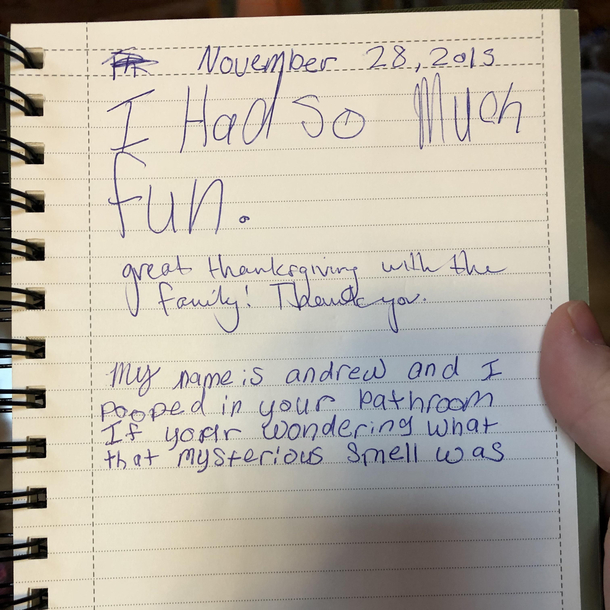 November 28, 2015
I Had so Much
fun.
great thanksgiving with the
family! Thank you.
My name is andrew and I
pooped in your bathroom
If your wondering what
that mysterious smell was